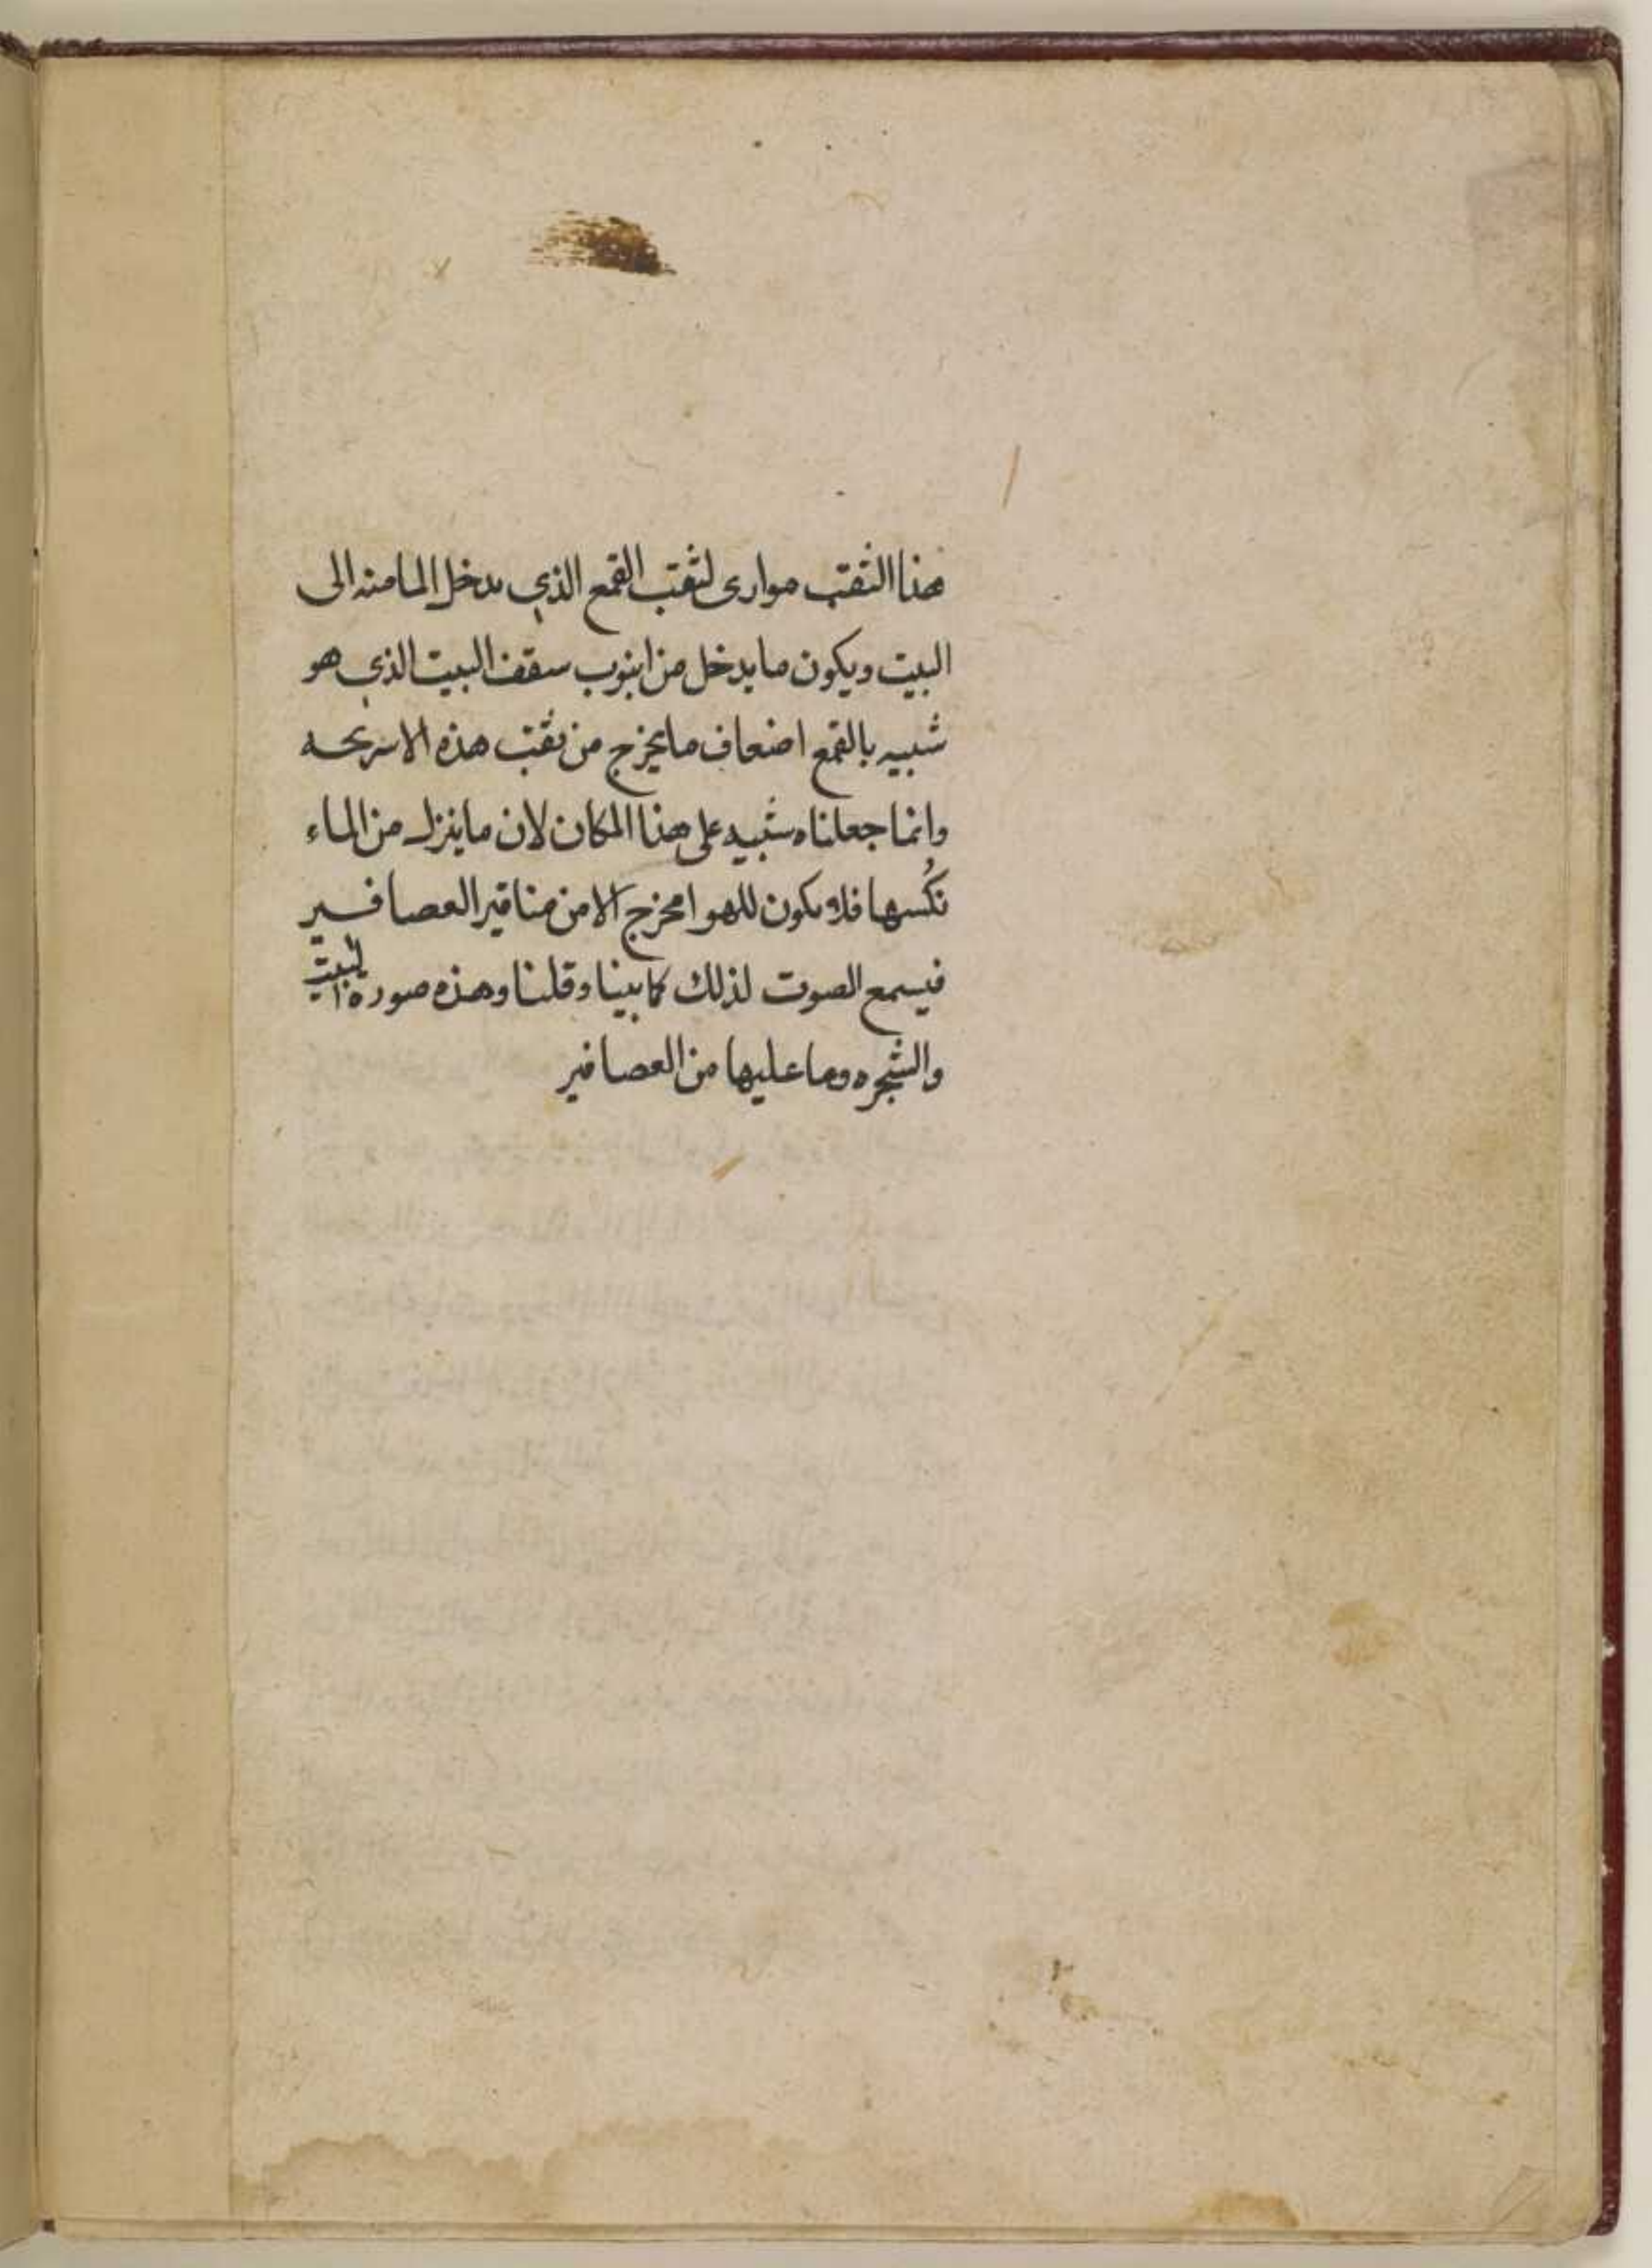 هذا الثقب موارى لثقب القمع الذي يدخل الما منه الى
البيت ويكون ما يدخل من انبوب سقف البيت الذي هو
شبيه بالقمع اضعاف ما يخرج من ثقب هذه
وانما جعلناه شبيه على هذا المكان لان ما ينزل من الماء
فلا يكون للهوا مخرج الا من مناقير العصافير
فيسمع الصوت لذلك كما بينا وقلنا وهذه صوره البيت
والشجره وما عليها من العصافير